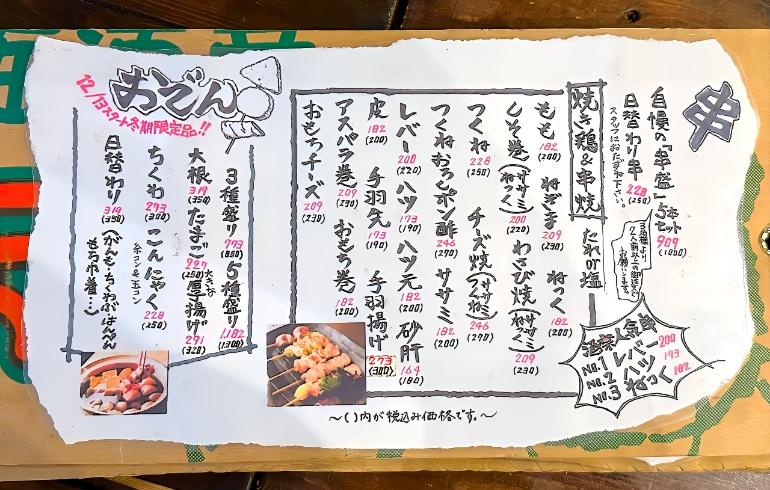 串
自慢の「串盛」5本セット 909 (1000)
日替わり串 228 (250)
スタッフにおたずね下さい。
3種様より
2人前以上の御注文で
お願いします。
酒菜人気串
No.1 レバー 200
No.2 ハツ 193
No.3 ねっく 182
焼き鶏&串焼 たれor塩
もも 182 (200) ねぎま 209 (230) ねっく 182 (200)
しそ巻(ササミねっく) 200 (220) わさび焼(ササミねっく) 209 (230)
つくね 228 (250) チーズ焼(ササミつくね) 246 (270)
つくねおろしポン酢 246 (270) ササミ 182 (200)
レバー 200 (220) ハツ 173 (190) ハツ元 182 (200) 砂肝 164 (180)
皮 182 (200) 手羽先 173 (190) 手羽揚げ 273 (300)
アスパラ巻 209 (230) おもち巻 182 (200)
おもちチーズ 209 (230)
おでん
12/13スタート冬期限定品!!
3種盛り 773 (850) 5種盛り 1,182 (1300)
大根 319 (350) たまご 227 (250) 大きな厚揚げ 291 (320)
ちくわ 273 (300) こんにゃく 228 (250)
糸コン&玉コン
日替わり 319 (350) (がんも・ちくわぶ・はんぺん
もち巾着…)
〜( )内が税込み価格です。〜